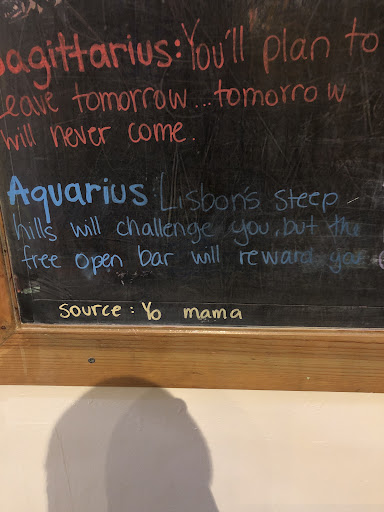 Sagittarius: You'll plan to
Leave tomorrow...tomorrow
will never come.
Aquarius: Lisbon's steep
hills will challenge you, but the
free open bar will reward you
source: Yo mama